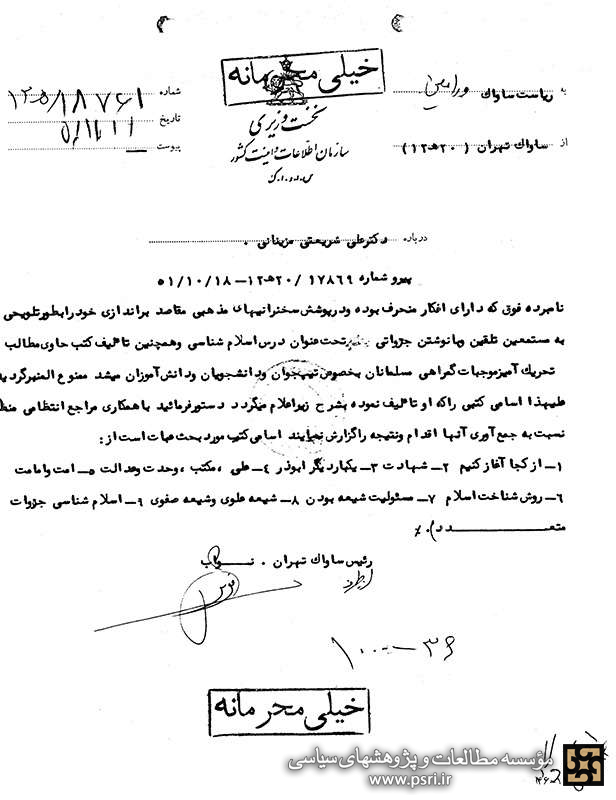 خیلی محرمانه
نخست وزیری
سازمان اطلاعات و امنیت کشور
س.ا.و.ا.ک
به ریاست ساواک ورامین
از ساواک تهران ( ۲۰ﻫ۱۲ )
شماره ۱۸۷۶۱
تاریخ
پیوست
درباره دکترعلی شریعتی مزینانی .
پیرو شماره ۱۷۸۶۹ / ۲۰ﻫ۱۲ – ۵۱/۱۰/۱۸
نامبرده فوق که دارای افکار منحرف بوده و در پوشش سخنرانیهای مذهبی مقاصد براندازی خود را بطور تلویحی
به مستمعین تلقین و با نوشتن جزواتی تحت عنوان درس اسلام شناسی و همچنین تألیف کتب حاوی مطالب
تحریک آمیز موجبات گمراهی مسلمانان بخصوص تیپ جوان و دانشجویان و دانش آموزان میشد ممنوع المنبر گردیده
علیهذا اسامی کتبی را که او تألیف نموده بشرح زیر اعلام میگردد دستور فرمائید با همکاری مراجع انتظامی
نسبت به جمع آوری آنها اقدام و نتیجه را گزارش نمایند اسامی کتب مورد بحث عبارت است از :
۱– از کجا آغاز کنیم ۲– شهادت ۳– یکبار دیگر ابوذر ۴– علی ، مکتب ، وحدت و عدالت ۵– امت و امامت
۶– روش شناخت اسلام ۷– مسئولیت شیعه بودن ۸– شیعه علوی و شیعه صفوی ۹– اسلام شناسی جزوات
متعـــدد ) . ٪
رئیس ساواک تهران . نـــواب
۳۶ – ۱۰۰۰
خیلی محرمانه
مؤسسه مطالعات و پژوهشهای سیاسی
www.psri.ir